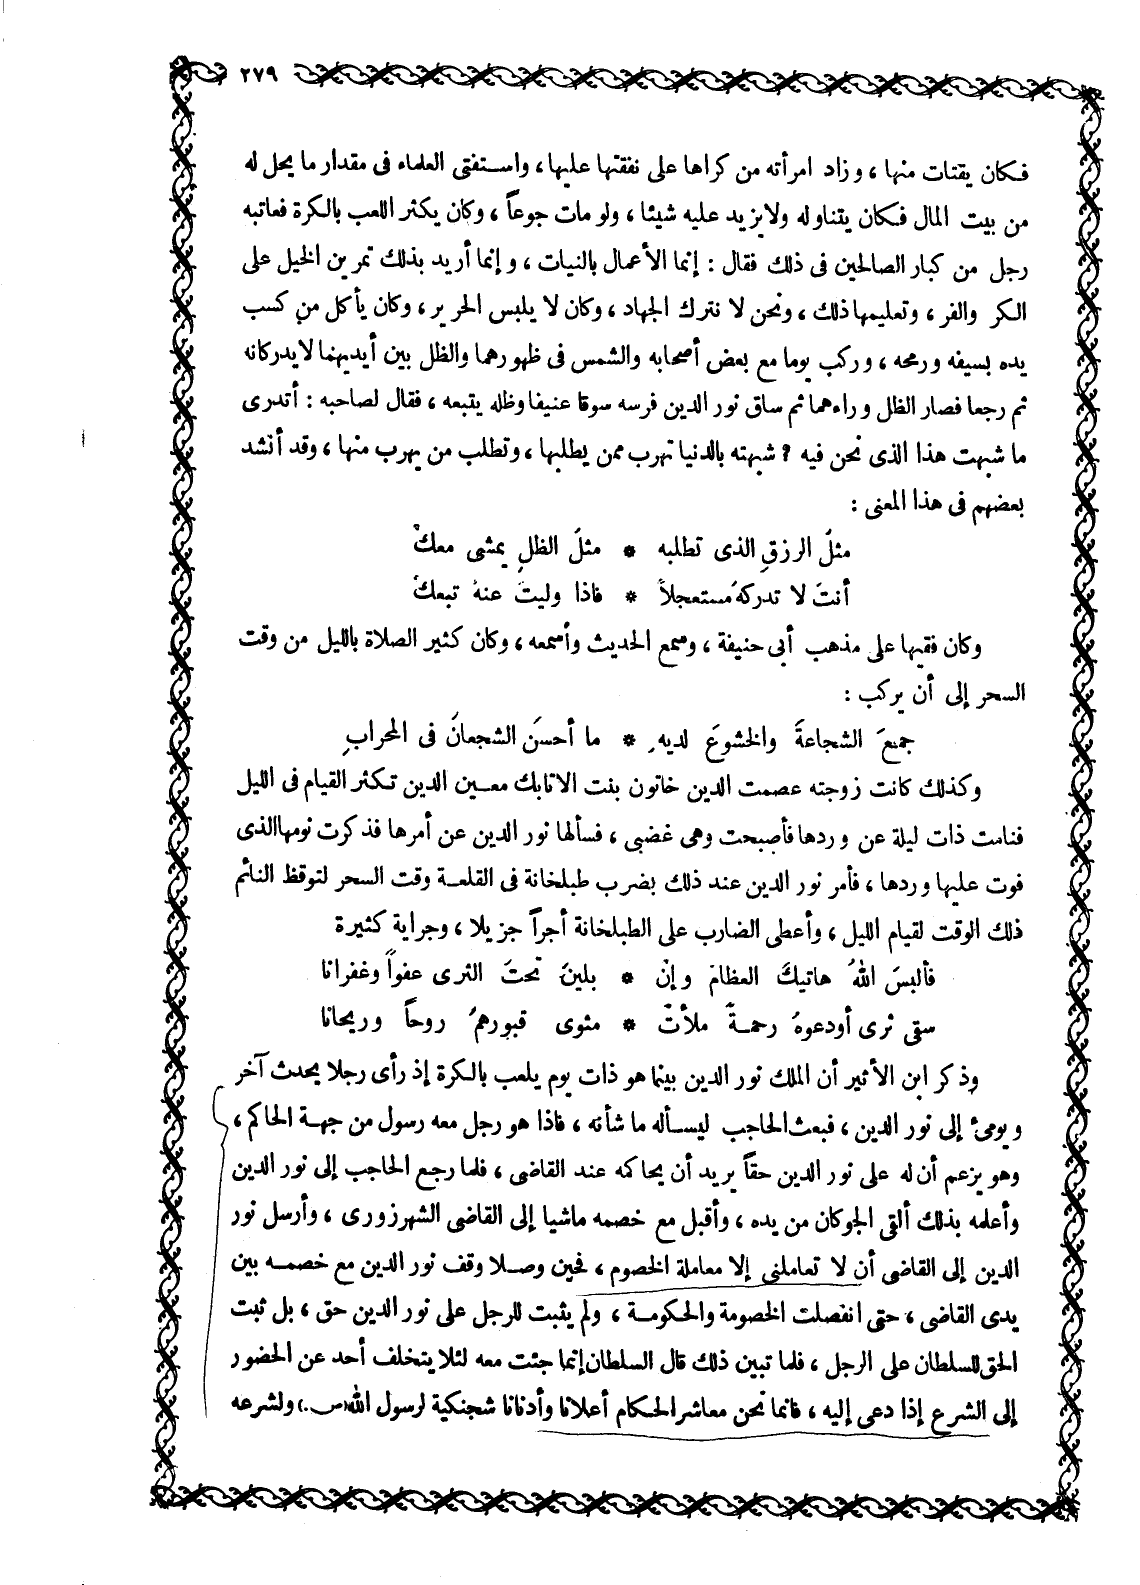 ٢٧٩
فكان يقتات منها ، وزاد امرأته من كراها على نفقتها عليها ، واستفتى العلماء فى مقدار ما يحل له
من بيت المال فكان يتناوله ولا يزيد عليه شيئا ، ولو مات جوعاً ، وكان يكثر اللعب بالكرة فعاتبه
رجل من كبار الصالحين فى ذلك فقال : إنما الأعمال بالنيات ، وإنما أريد بذلك تمرين الخيل على
الكر والفر ، وتعليمها ذلك ، ونحن لا نترك الجهاد ، وكان لا يلبس الحرير ، وكان يأكل من كسب
يده بسيفه ورمحه ، وركب يوما مع بعض أصحابه والشمس فى ظهورهما والظل بين أيديهما لا يدركانه
ثم رجعا فصار الظل وراءهما ثم ساق نور الدين فرسه سوقا عنيفا وظله يتبعه ، فقال لصاحبه : أتدرى
ما شبهت هذا الذى نحن فيه ؟ شبهته بالدنيا تهرب ممن يطلبها ، وتطلب من يهرب منها ، وقد أنشد
بعضهم فى هذا المعنى :
مثلُ الرزقِ الذى تطلبه * مثلُ الظلِ يمشى معكْ
أنتَ لا تدركهُ مستعجلاً * فاذا وليتَ عنهُ تبعكْ
وكان فقيها على مذهب أبى حنيفة ، وسمع الحديث وأسمعه ، وكان كثير الصلاة بالليل من وقت
السحر إلى أن يركب :
جمعَ الشجاعةَ والخشوعَ لديهِ * ما أحسنَ الشجعانَ فى المحرابِ
وكذلك كانت زوجته عصمت الدين خاتون بنت الاتابك معين الدين تكثر القيام فى الليل
فنامت ذات ليلة عن وردها فأصبحت وهى غضبى ، فسألها نور الدين عن أمرها فذكرت نومها الذى
فوت عليها وردها ، فأمر نور الدين عند ذلك بضرب طبلخانة فى القلعة وقت السحر لتوقظ النائم
ذلك الوقت لقيام الليل ، وأعطى الضارب على الطبلخانة أجراً جزيلا ، وجراية كثيرة
فألبسَ اللهُ هاتيكَ العظامَ وإنْ * بلينَ تحتَ الثرى عفواً وغفرانا
سقى ثرى أودعوهُ رحمةً ملأتْ * مثوى قبورهمْ روحاً وريحانا
وذكر ابن الأثير أن الملك نور الدين بينما هو ذات يوم يلعب بالكرة إذ رأى رجلا يحدث آخر
ويومئ إلى نور الدين ، فبعث الحاجب ليسأله ما شأنه ، فاذا هو رجل معه رسول من جهة الحاكم ،
وهو يزعم أن له على نور الدين حقاً يريد أن يحاكمه عند القاضى ، فلما رجع الحاجب إلى نور الدين
وأعلمه بذلك ألقى الجوكان من يده ، وأقبل مع خصمه ماشيا إلى القاضى الشهرزورى ، وأرسل نور
الدين إلى القاضى أن لا تعاملنى إلا معاملة الخصوم ، فحين وصلا وقف نور الدين مع خصمه بين
يدى القاضى ، حتى انفصلت الخصومة والحكومة ، ولم يثبت للرجل على نور الدين حق ، بل ثبت
الحق للسلطان على الرجل ، فلما تبين ذلك قال السلطان إنما جئت معه لئلا يتخلف أحد عن الحضور
إلى الشرع إذا دعى إليه ، فانما نحن معاشر الحكام أعلانا وأدنانا شجنكية لرسول الله (س.) ولشرعه